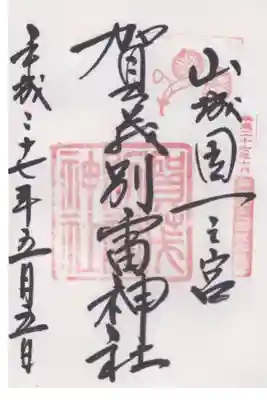 山城國一之宮
賀茂別雷神社
平成二十七年五月五日
賀茂別雷神社